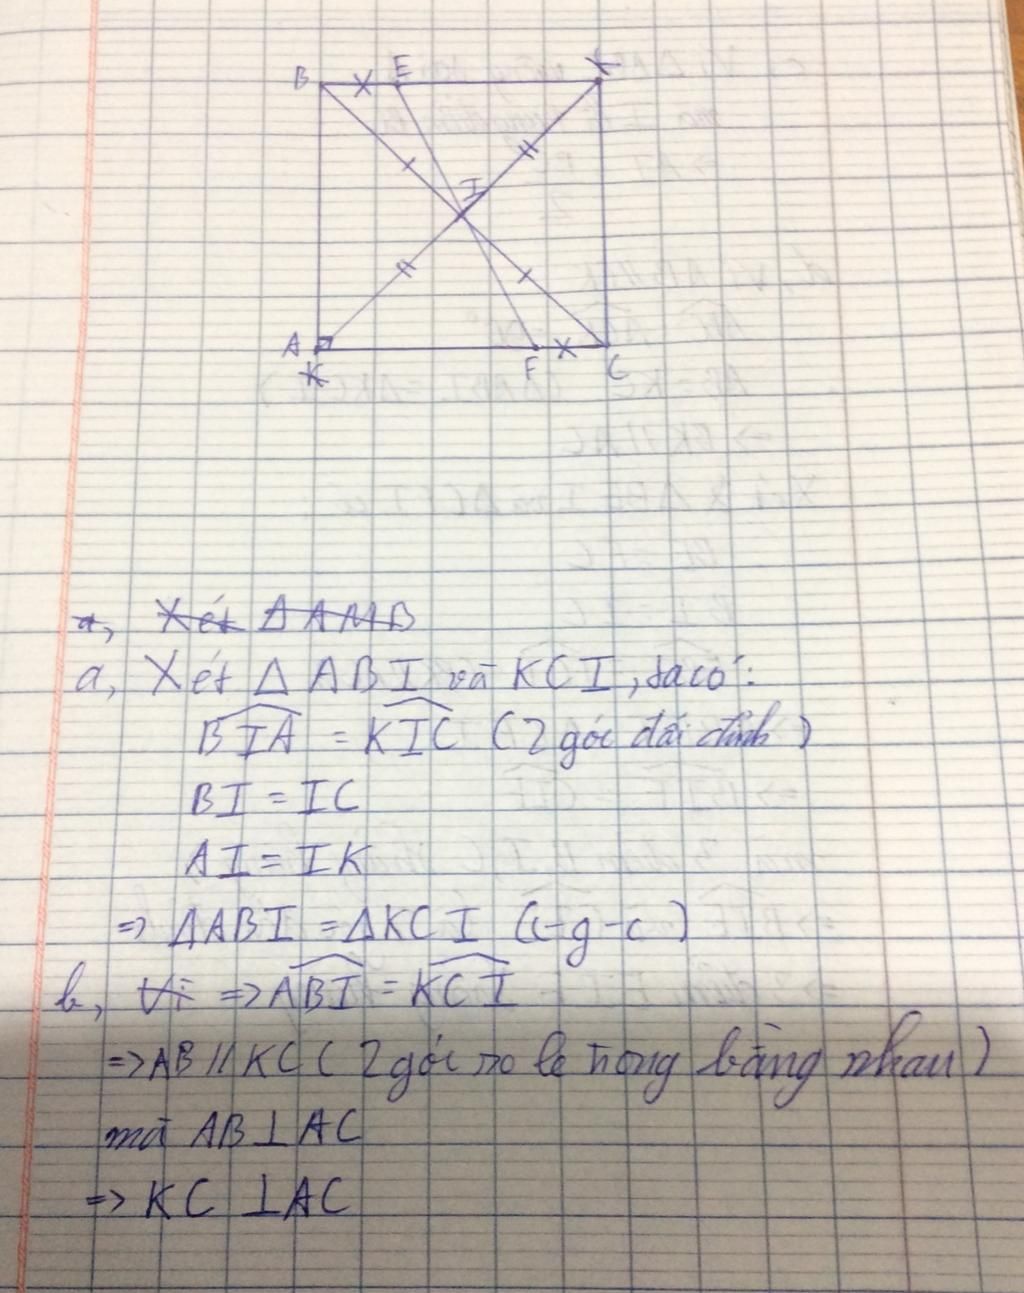 B E K
I
A F C
K
a, Xét Δ AMB
a, Xét Δ ABI và KCI, ta có:
BIA = KIC (2 góc đối đỉnh)
BI = IC
AI = IK
=> ΔABI = ΔKCI (c-g-c)
b, Vì => ABI = KCI
=> AB // KC (2 góc so le trong bằng nhau)
mà AB ⊥ AC
=> KC ⊥ AC